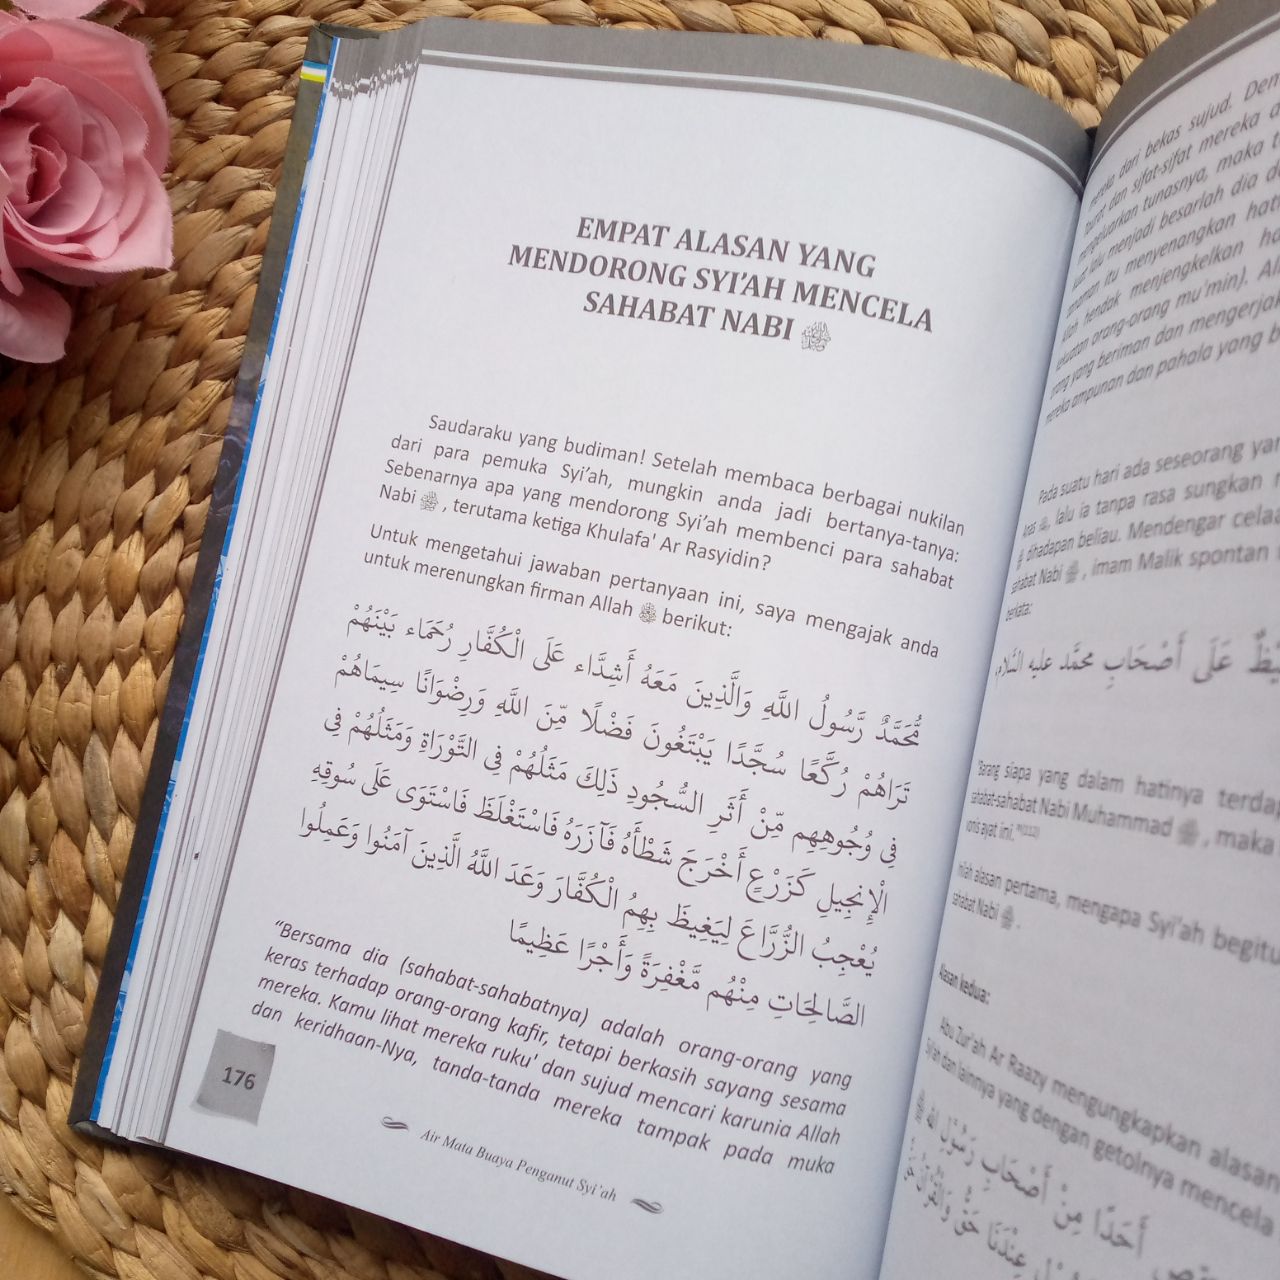 EMPAT ALASAN YANG
MENDORONG SYI’AH MENCELA
SAHABAT NABI ﷺ
Saudaraku yang budiman! Setelah membaca berbagai nukilan
dari para pemuka Syi’ah, mungkin anda jadi bertanya-tanya:
Sebenarnya apa yang mendorong Syi’ah membenci para sahabat
Nabi ﷺ, terutama ketiga Khulafa' Ar Rasyidin?
Untuk mengetahui jawaban pertanyaan ini, saya mengajak anda
untuk merenungkan firman Allah berikut:
مُّحَمَّدٌ رَّسُولُ اللَّهِ وَالَّذِينَ مَعَهُ أَشِدَّاء عَلَى الْكُفَّارِ رُحَمَاء بَيْنَهُمْ
تَرَاهُمْ رُكَّعًا سُجَّدًا يَبْتَغُونَ فَضْلًا مِّنَ اللَّهِ وَرِضْوَانًا سِيمَاهُمْ
فِي وُجُوهِهِم مِّنْ أَثَرِ السُّجُودِ ذَلِكَ مَثَلُهُمْ فِي التَّوْرَاةِ وَمَثَلُهُمْ فِي
الْإِنجِيلِ كَزَرْعٍ أَخْرَجَ شَطْأَهُ فَآزَرَهُ فَاسْتَغْلَظَ فَاسْتَوَى عَلَى سُوقِهِ
يُعْجِبُ الزُّرَّاعَ لِيَغِيظَ بِهِمُ الْكُفَّارَ وَعَدَ اللَّهُ الَّذِينَ آمَنُوا وَعَمِلُوا
الصَّالِحَاتِ مِنْهُم مَّغْفِرَةً وَأَجْرًا عَظِيمًا
“Bersama dia (sahabat-sahabatnya) adalah orang-orang yang
keras terhadap orang-orang kafir, tetapi berkasih sayang sesama
mereka. Kamu lihat mereka ruku' dan sujud mencari karunia Allah
dan keridhaan-Nya, tanda-tanda mereka tampak pada muka
176
Air Mata Buaya Penganut Syi’ah
mereka dari bekas sujud.
dan sifat-sifat mereka
mengeluarkan tunasnya, maka
lalu menjadi besarlah dia
itu menyenangkan hati
Allah hendak menjengkelkan
kekuatan orang-orang mu'min).
orang yang beriman dan mengerjakan
mereka ampunan dan pahala yang
Pada suatu hari ada seseorang
Anas, lalu ia tanpa rasa sungkan
dihadapan beliau. Mendengar
sahabat Nabi ﷺ, imam Malik spontan
berkata:
عَلَى أَصْحَابِ محمَّد عليه السَّلام
'Barang siapa yang dalam hatinya
sahabat-sahabat Nabi Muhammad ﷺ, maka
vonis ayat ini.
Inilah alasan pertama, mengapa Syi'ah
sahabat Nabi ﷺ.
Alasan kedua:
Abu Zur'ah Ar Raazy mengungkapkan alasan
Syi'ah dan lainnya yang dengan getolnya mencela
أَحَدًا مِنْ أَصْحَابِ رَسُوْلِ الله
عِنْدَنَا حَقٌّ وَالْقُرْآنُ